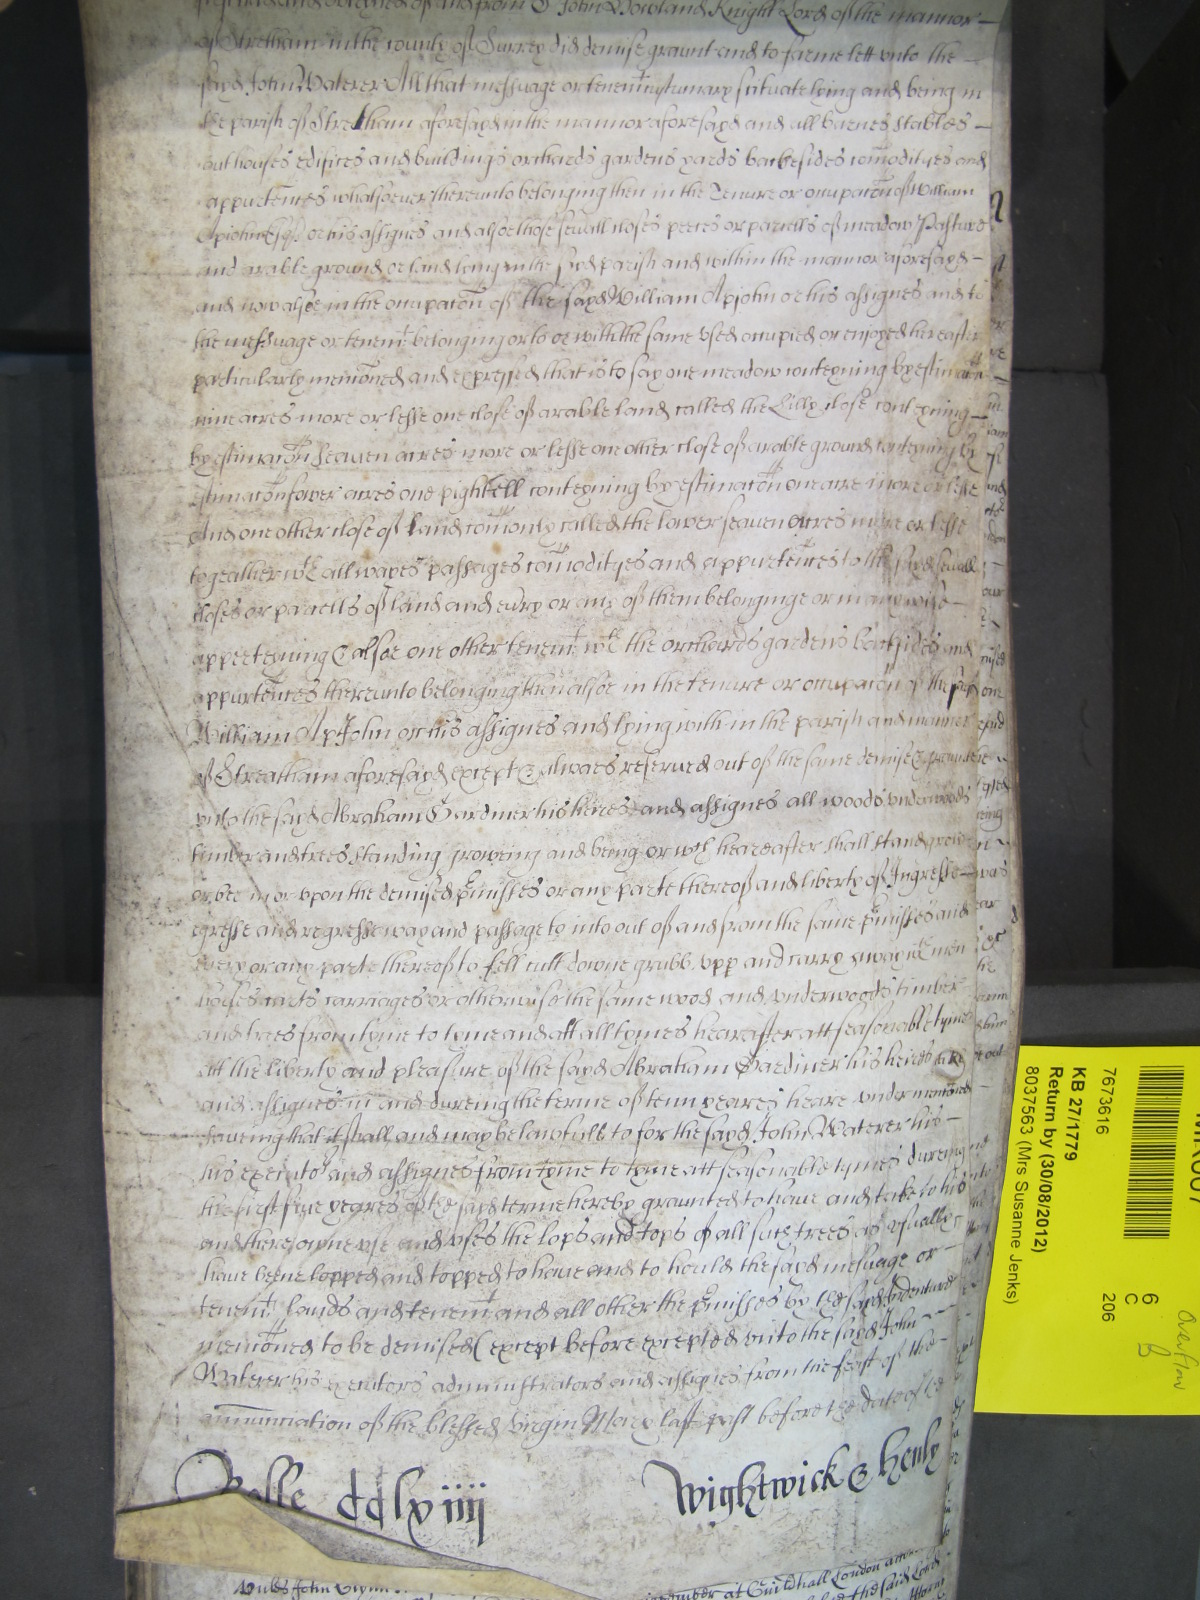 John Howland Knight Lord of the mannor
of Stretham in the county of Surrey did demise graunt and to farme lett unto the
sayd John Waterer All that messuage or tenemt scituate lying and being in
the parish of Stretham aforesayd in the mannor aforesayd and all barnes stables
out houses edifices and buildings orchards gardens yards backesides comodityes and
appurtences whatsoever thereunto belonging then in the Tenure or occupacon of William
Apjohn Esqr. or his assignes and alsoe those severall closes peeces or parcells of meadow Pasture
and arable ground or land lying in the sayd parish and within the mannor aforesayd
and now alsoe in the occupacon of the sayd William Apjohn or his assignes and to
the messuage or tenemt belonging or to or with the same used occupied or enjoyed hereafter
particularly menconed and expressed that is to say one meadow conteyning by estimacon
nine acres more or lesse one close of arable land called the Lilly close conteyning
by estimacon seaven acres more or lesse one other close of arable ground conteyning by
estimacon fower acres one pightell conteyning by estimacon one acre more or lesse
And one other close of land comonly called the lower seaven acres more or lesse
togeather wth all wayes passages comodityes and appurtences to the sayd severall
closes or parcells of land and every or any of them belonginge or in any wise
apperteyning & alsoe one other tenemt wth the orchards gardens backsides and
appurtences thereunto belonging then alsoe in the tenure or occupacon of the sayd
William ApJohn or his assignes and lying with in the parish and mannor
of Streatham aforesayd except & alwaes reserved out of the same demise & graunte
unto the sayd Abraham Gardiner his heires and assignes all woods underwoods
timber and trees standing groweing and being or wch heareafter shall stand grow
or bee in or upon the demised pmisses or any parte thereof and liberty of Ingresse
egresse and regresse way and passage to into out of and from the same pmisses and
every or any parte thereof to fell cutt downe grubb upp and carry away wth men
horses carts carriages or otherwise the same wood and underwoods timber
and trees from tyme to tyme and att all tymes hearafter att seasonable tyme
att the liberty and pleasure of the sayd Abraham Gardiner his heires
and assignes in and dureing the terme of tenn yeares heare under menconed
saveing that it shall and may be lawfull to for the sayd John Waterer his
his executors and assignes from tyme to tyme att seasonable tymes dureing
the first five yeares of the sayd terme hereby graunted to have and take to his
and there owne use and uses the lops and tops of all such trees as usually
have beene lopped and topped to have and to hould the sayd messuage or
tenemt lands and tenemt and all other the pmisses by the sayd Indenture
menconed to be demised (except before excepted unto the sayd John
Waterer his executors administrators and assignes from the feast of the
annunciation of the blessed virgin Mary last past before the date of the
Rolle ddlxiiij Wightwick & Henly
at Guildhall London
the said Lord
7673616
KB 27/1779
Return by (30/08/2012)
8037563 (Mrs Susanne Jenks)
6
C
206
B